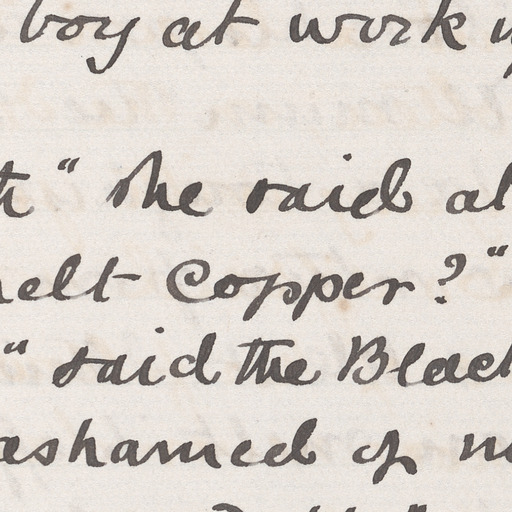 boy at work
" she said al
elt copper?"
" said the Black
ashamed of